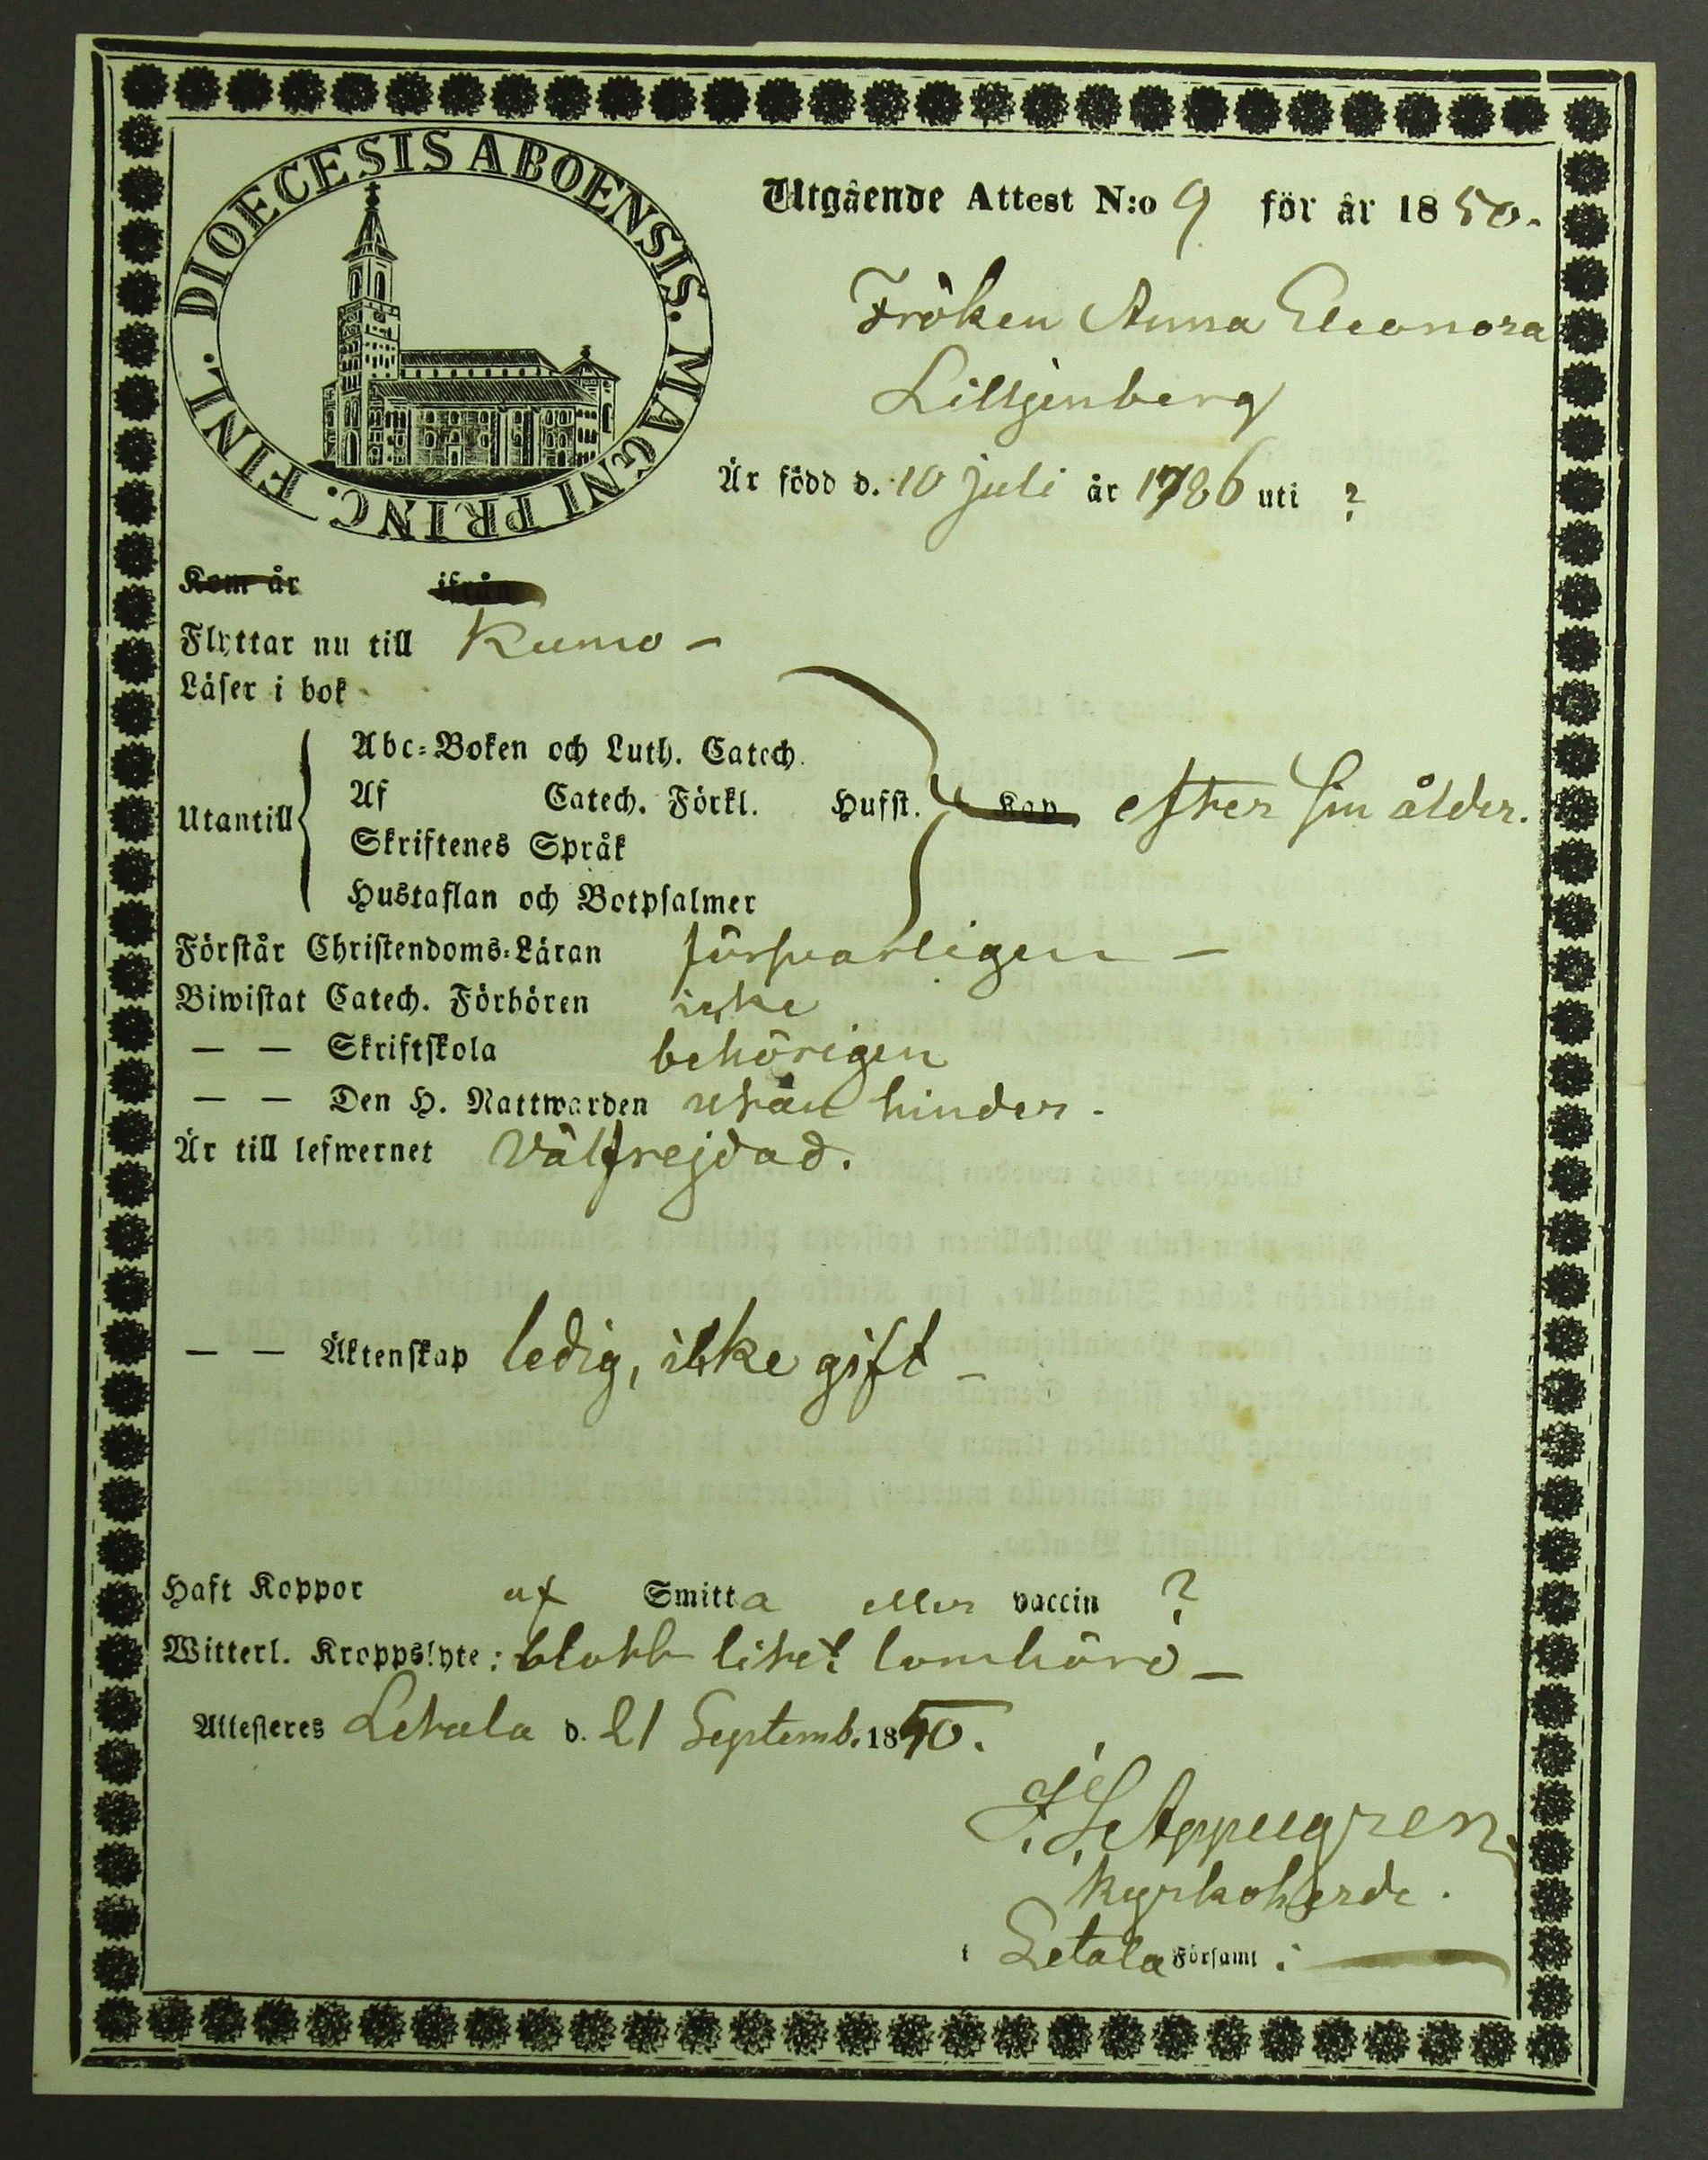 DIOECESIS ABOENSIS. MAGNI PRINC. FINL.
Utgående Attest N:o 9 för år 1850.
Fröken Anna Eleonora
Lilljenberg
Är född d. 10 juli år 1786 uti ?
Kom år ifrån
Flyttar nu till Kumo –
Läser i bok
Utantill
Abc-Boken och Luth. Catech.
Af Catech. Förkl. Husst. Kap. efter sin ålder.
Skriftenes Språk
Hustaflan och Botpsalmer
Förstår Christendoms-Läran försvarligen –
Biwistat Catech. Förhören icke
— — Skriftskola behörigen
— — Den H. Nattwarden utan hinder.
Är till lefwernet Välfrejdad.
— — Äktenskap ledig, icke gift –
Haft Koppor af Smitta eller vaccin ?
Witterl. Kroppslyte: blott litet lomhörd –
Attesteres Letala d. 21 Septemb. 1850.
Kyrkoherde.
i Letala Församl: